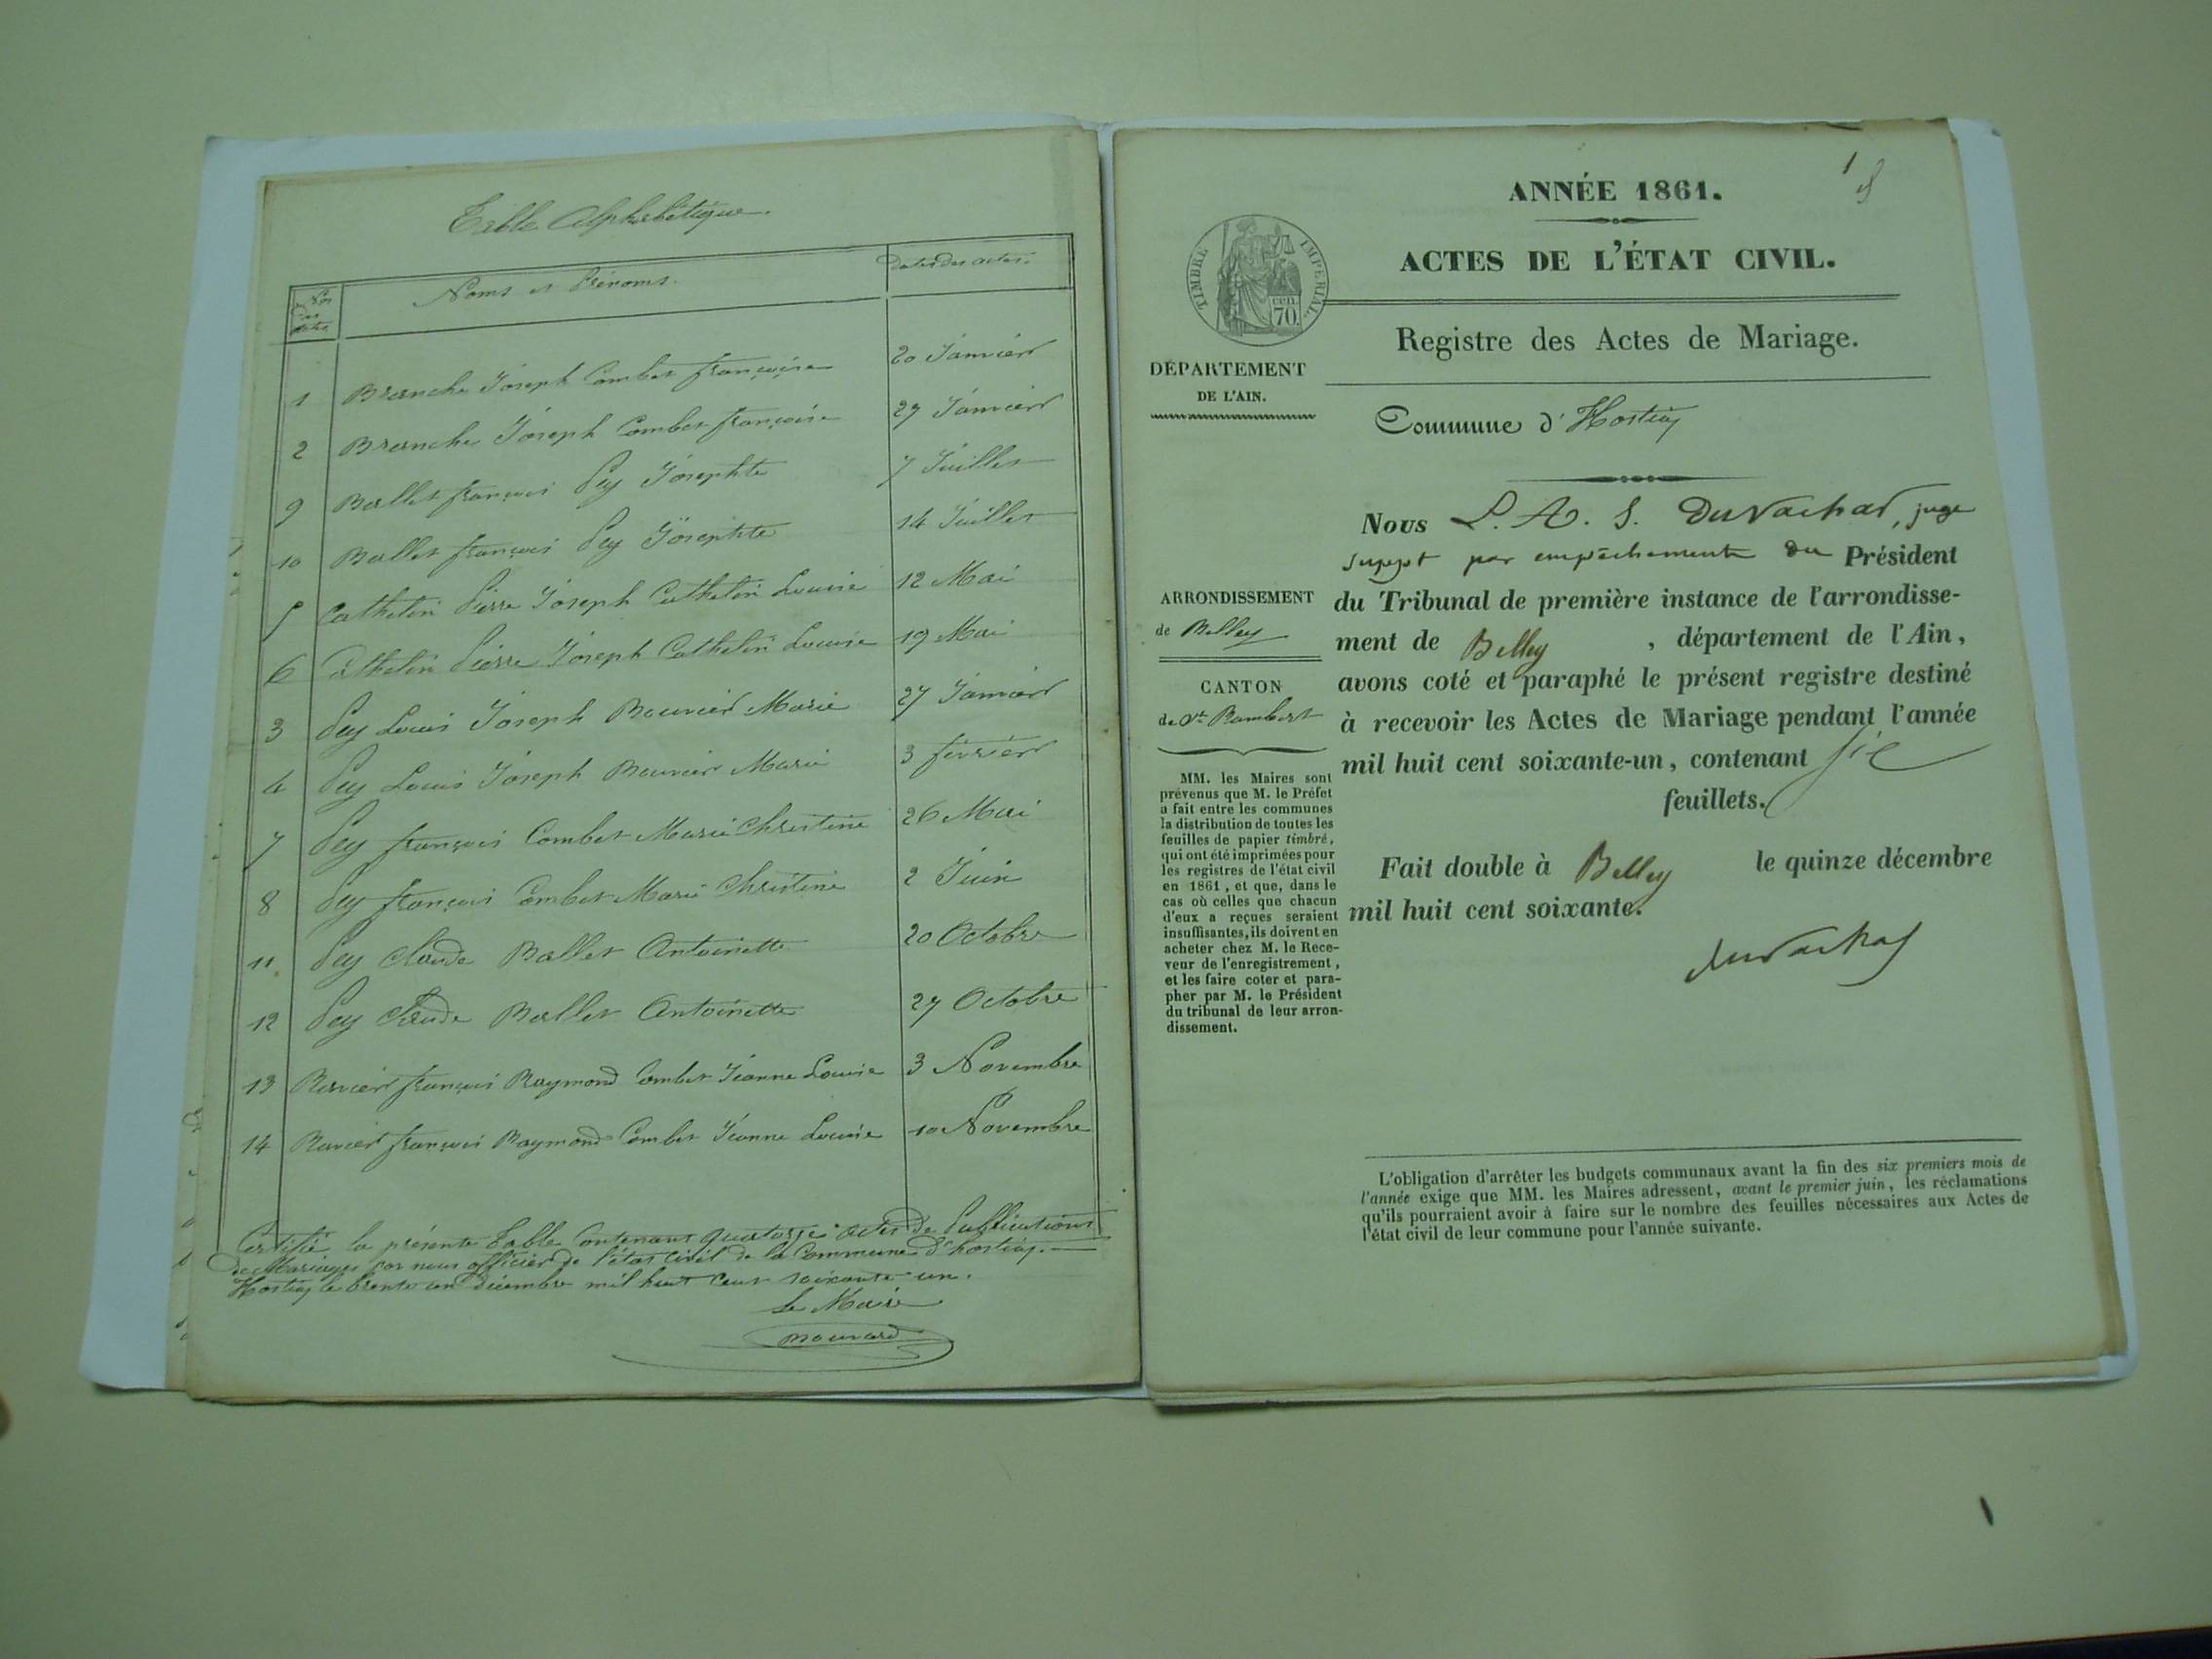 Table Alphabétique
Nos des actes
Noms et Prénoms.
Dates des actes.
1 Branche Joseph Combet françoise 20 Janvier
2 Branche Joseph Combet françoise 27 Janvier
9 Ballet françois Pey Josephte 7 Juillet
10 Ballet françois Pey Josephte 14 Juillet
5 Cathelin Pierre Joseph Cathelin Louise 12 Mai
6 Cathelin Pierre Joseph Cathelin Louise 19 Mai
3 Pey Louis Joseph Bouvier Marie 27 Janvier
4 Pey Louis Joseph Bouvier Marie 3 février
7 Pey françois Combet Marie Christine 26 Mai
8 Pey françois Combet Marie Christine 2 Juin
11 Pey Claude Ballet Antoinette 20 Octobre
12 Pey Claude Ballet Antoinette 27 Octobre
13 Ravier françois Raymond Combet Jeanne Louise 3 Novembre
14 Ravier françois Raymond Combet Jeanne Louise 10 Novembre
Certifié la présente Table Contenant quatorze actes de Publications
de Mariages par nous officier de l'état civil de la Commune d'hostiaz.
Hostiaz le trente un décembre mil huit cent soixante un.
Le Maire
1
ANNÉE 1861.
ACTES DE L'ÉTAT CIVIL.
TIMBRE IMPÉRIAL.
CEN. 70.
Registre des Actes de Mariage.
DÉPARTEMENT
DE L'AIN.
Commune d'Hostiaz
Nous L. A. S. Duvachat, juge
suppt par empêchement du Président
du Tribunal de première instance de l'arrondisse-
ment de Belley , département de l'Ain,
avons coté et paraphé le présent registre destiné
à recevoir les Actes de Mariage pendant l'année
mil huit cent soixante-un, contenant six
feuillets.
Fait double à Belley le quinze décembre
mil huit cent soixante.
Duvachat
ARRONDISSEMENT
de Belley
CANTON
de St Rambert
MM. les Maires sont
prévenus que M. le Préfet
a fait entre les communes
la distribution de toutes les
feuilles de papier timbré,
qui ont été imprimées pour
les registres de l'état civil
en 1861, et que, dans le
cas où celles que chacun
d'eux a reçues seraient
insuffisantes, ils doivent en
acheter chez M. le Rece-
veur de l'enregistrement,
et les faire coter et para-
pher par M. le Président
du tribunal de leur arron-
dissement.
L'obligation d'arrêter les budgets communaux avant la fin des six premiers mois de
l'année exige que MM. les Maires adressent, avant le premier juin, les réclamations
qu'ils pourraient avoir à faire sur le nombre des feuilles nécessaires aux Actes de
l'état civil de leur commune pour l'année suivante.